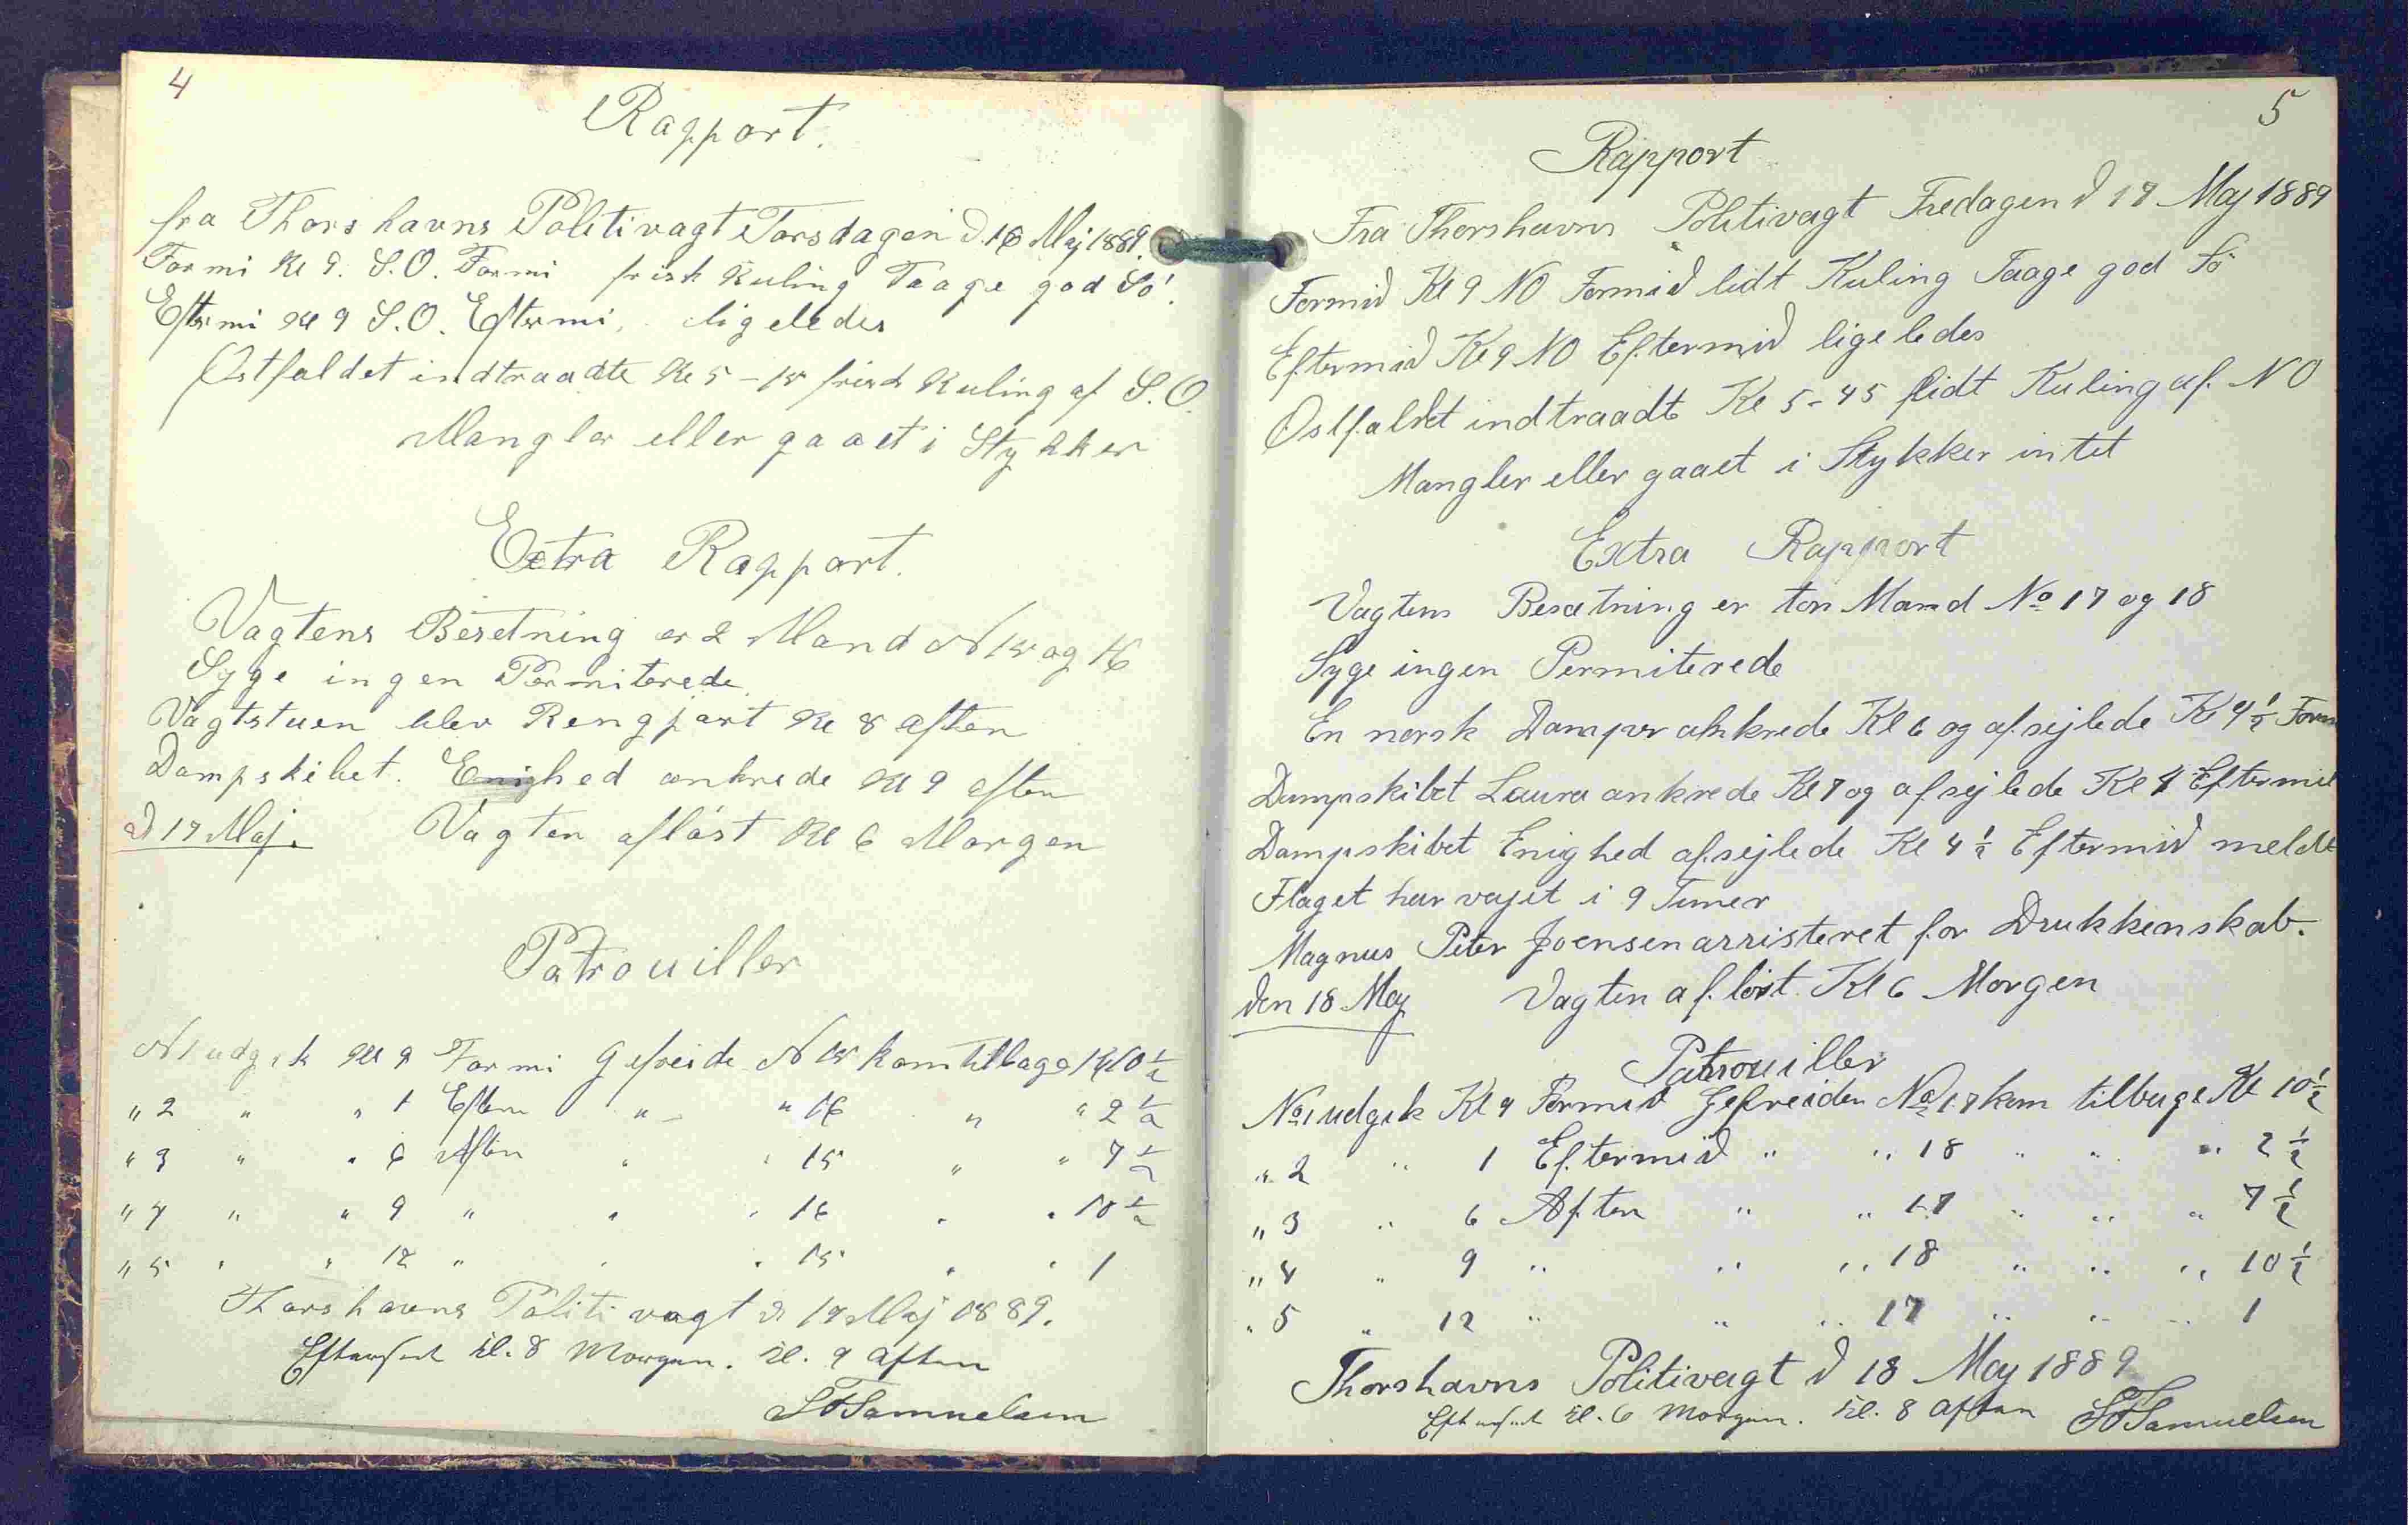 4
Rapport.
fra Thorshavns Politivagt Torsdagen d. 16 Maj 1889.
Formi Kl 9. S.O. Formi frisk Kuling Taage god Sö.
Eftermi Kl 9 S.O. Eftermi. ligeledes
Østfaldet indtraadte Kl 5-15 frisk Kuling af S.O.
Mangler eller gaaet i Stykker
Extra Rapport.
Vagtens Besetning er 2 Mand N 15 og 16
Syge ingen Permiterede
Vagtstuen blev Rengjort Kl 8 aften
Dampskibet. Enighed ankrede Kl 9 aften
d 17 Maj. Vagten aflöst Kl 6 Morgen
Patrouiller
N 1 udgik Kl 9 Formi Gefreide N 15 kom tilbage Kl 10 1/2
" 2 " " 1 Efterm " " 16 " " 2 1/2
" 3 " " 6 Aften " " 15 " " 7 1/2
" 4 " " 9 " " " 16 " " 10 1/2
" 5 " " 12 " " " 15 " " 1
Thorshavns Politivagt d 17 Maj 1889.
Efterseet kl. 8 Morgen. kl. 9 aften
Samuelsen
5
Rapport
Fra Thorshavns Politivagt Fredagen d 17 Maj 1889
Formid Kl 9 NO Formid lidt Kuling Taage god Sö
Eftermid Kl 9 NO Eftermid ligeledes
Ostfaldet indtraadte Kl 5-45 lidt Kuling af. NO
Mangler eller gaaet i Stykker intet
Extra Rapport
Vagtens Besætning er tov Mand No 17 og 18
Syge ingen Permiterede
En norsk Damper ankrede Kl 6 og afsejlede Kl 9 1/2 Form
Dampskibet Laura ankrede Kl 7 og afsejlede Kl 4 Eftermid
Dampskibet Enighed afsejlede Kl 4 1/2 Eftermid meldt
Flaget har vajet i 9 Timer
Magnus Peter Joensen arristeret for Drukkenskab.
den 18 Maj Vagten aflöst Kl 6 Morgen
Patrouiller
No 1 udgik Kl 9 Formid Gefreiden No 17 kom tilbage Kl 10 1/2
" 2 " 1 Eftermid " " 18 " " " 2 1/2
" 3 " 6 Aften " " 17 " " " 7 1/2
" 4 " 9 " " " 18 " " " 10 1/2
" 5 " 12 " " " 17 " " " 1
Thorshavns Politivagt d 18 Maj 1889
Efterseet kl. 6 Morgen. kl. 8 aften Samuelsen